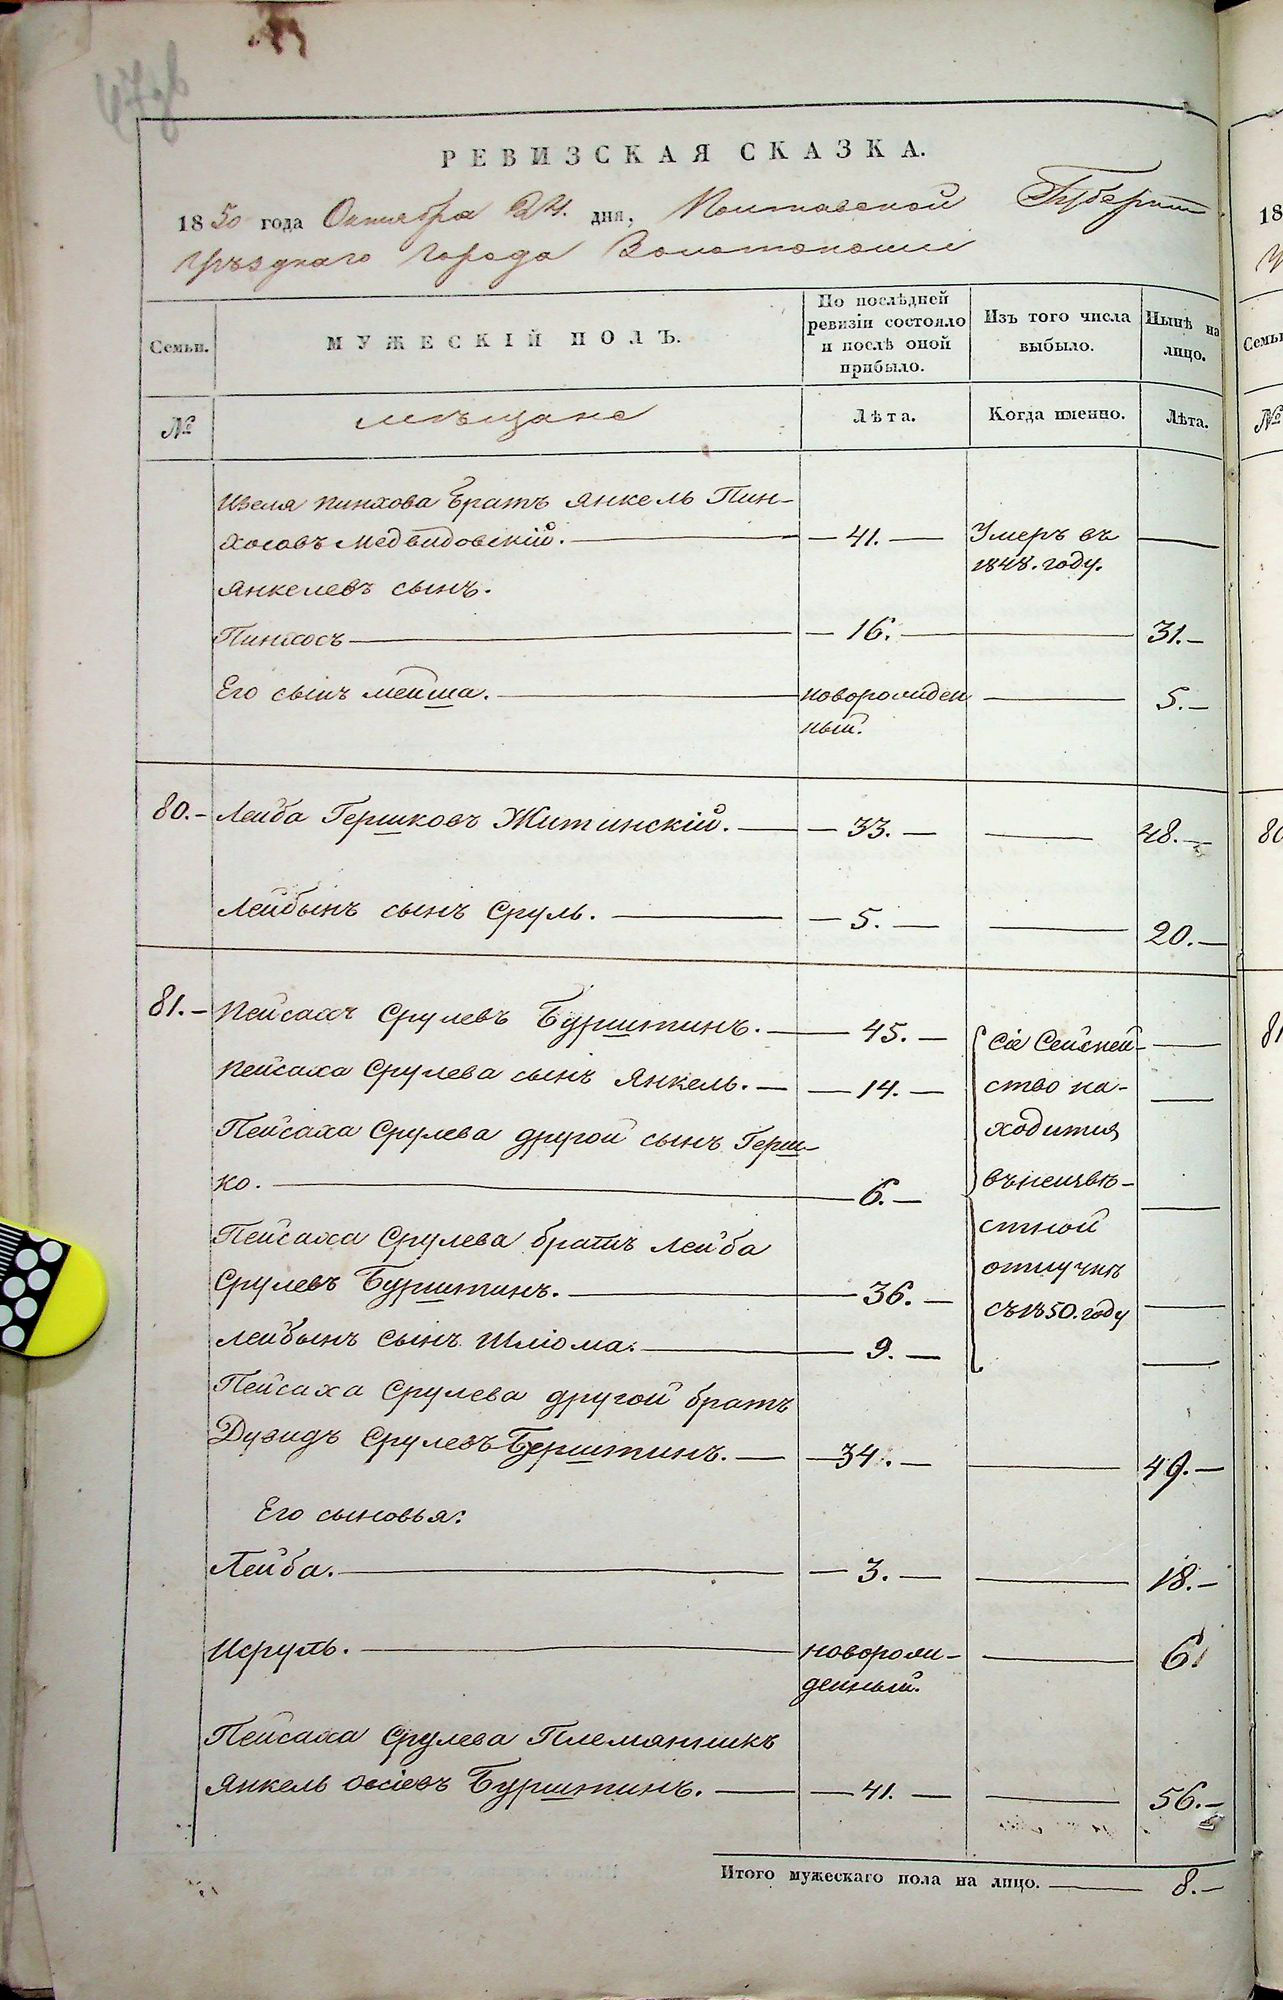 РЕВИЗСКАЯ СКАЗКА.
1850 года Октября 24. дня, Полтавской Губернии
Уѣзднаго Города Золотоноши
Семьи.
МУЖЕСКІЙ ПОЛЪ.
По послѣдней ревизіи состояло и послѣ оной прибыло.
Изъ того числа выбыло.
Нынѣ на лицо.
№
мѣщане
Лѣта.
Когда именно.
Лѣта.
Пинхова братъ Янкель Пин-
хосовъ Медвидовскій. — 41. — Умеръ въ 1848. году. —
Янкелевъ сынъ.
Пинхосъ — 16. — 31. —
Его сынъ Мейша. — новорожден ный. — 5. —
80. — Лейба Гершковъ Житинскій. — 33. — 48. —
Лейбынъ сынъ Сруль. — 5. — 20. —
81. — Пейсахъ Срулевъ Бурштинъ. — 45. —
Пейсаха Срулева сынъ Янкель. — 14. —
Пейсаха Срулева другой сынъ Герш-
ко. — 6. —
Пейсаха Срулева братъ Лейба
Срулевъ Бурштинъ. — 36. —
Лейбынъ сынъ Шліома. — 9. —
сіе Семей-
ство на-
ходится
въ неизвѣ-
стной
отлучкѣ
съ 1850. году
Пейсаха Срулева другой братъ
Дувидъ Срулевъ Бурштинъ. — 34. — 49. —
Его сыновья:
Лейба. — 3. — 18. —
Исруль. — новорож-
денный. — 6.
Пейсаха Срулева Племянникъ
Янкель Осіевъ Бурштинъ. — 41. — 56. —
Итого мужескаго пола на лицо. — 8. —